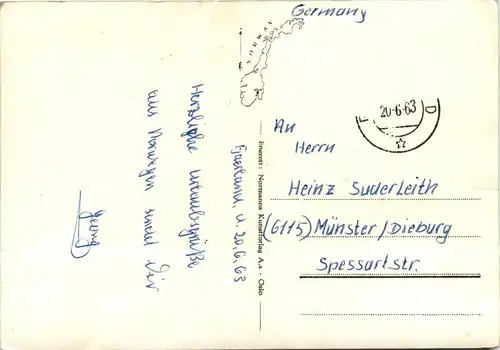 Germany
NORWAY
20-6-63
Fjærland d. 20.6.63
Herzliche Urlaubsgrüße
aus Norwegen sendet Dir
Georg
Enerett: Normanns Kunstforlag A.s - Oslo
An
Herrn
Heinz Suderleith
(6115) Münster/Dieburg
Spessartstr.